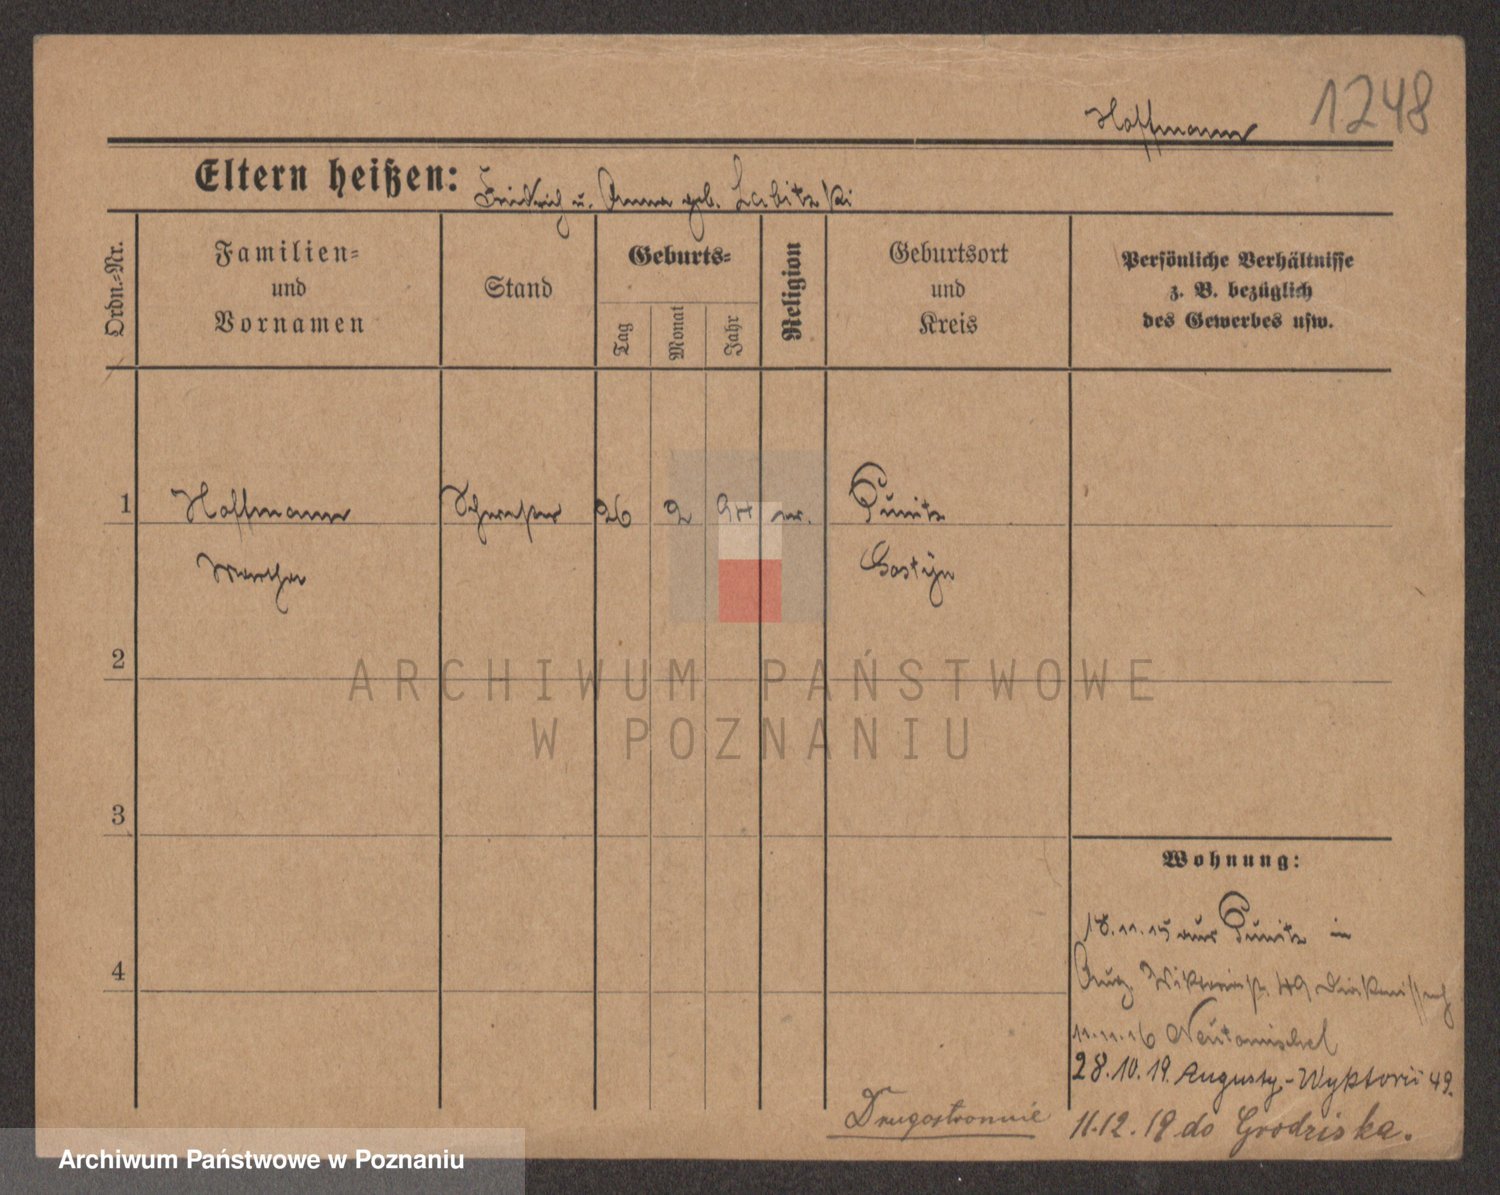 1248
Hoffmann
Eltern heißen: Friedrich u. Anna geb.
Ordn.-Nr.
Familien-
und
Vornamen
Stand
Geburts-
Tag
Monat
Jahr
Religion
Geburtsort
und
Kreis
Persönliche Verhältnisse
z. B. bezüglich
des Gewerbes usw.
1 Hoffmann Schwester 26 2 ev. Punitz
Martha Gostyn
2
ARCHIWUM PAŃSTWOWE
W POZNANIU
3
4
Wohnung:
18.11.15 aus Punitz in
Aug. Viktoriastr. 49 Diakonissenh
11.11.16 Neutomischel
28.10.19. Augusty-Wyktorii 49.
Drugostronnie
11.12.19 do Grodziska.
Archiwum Państwowe w Poznaniu